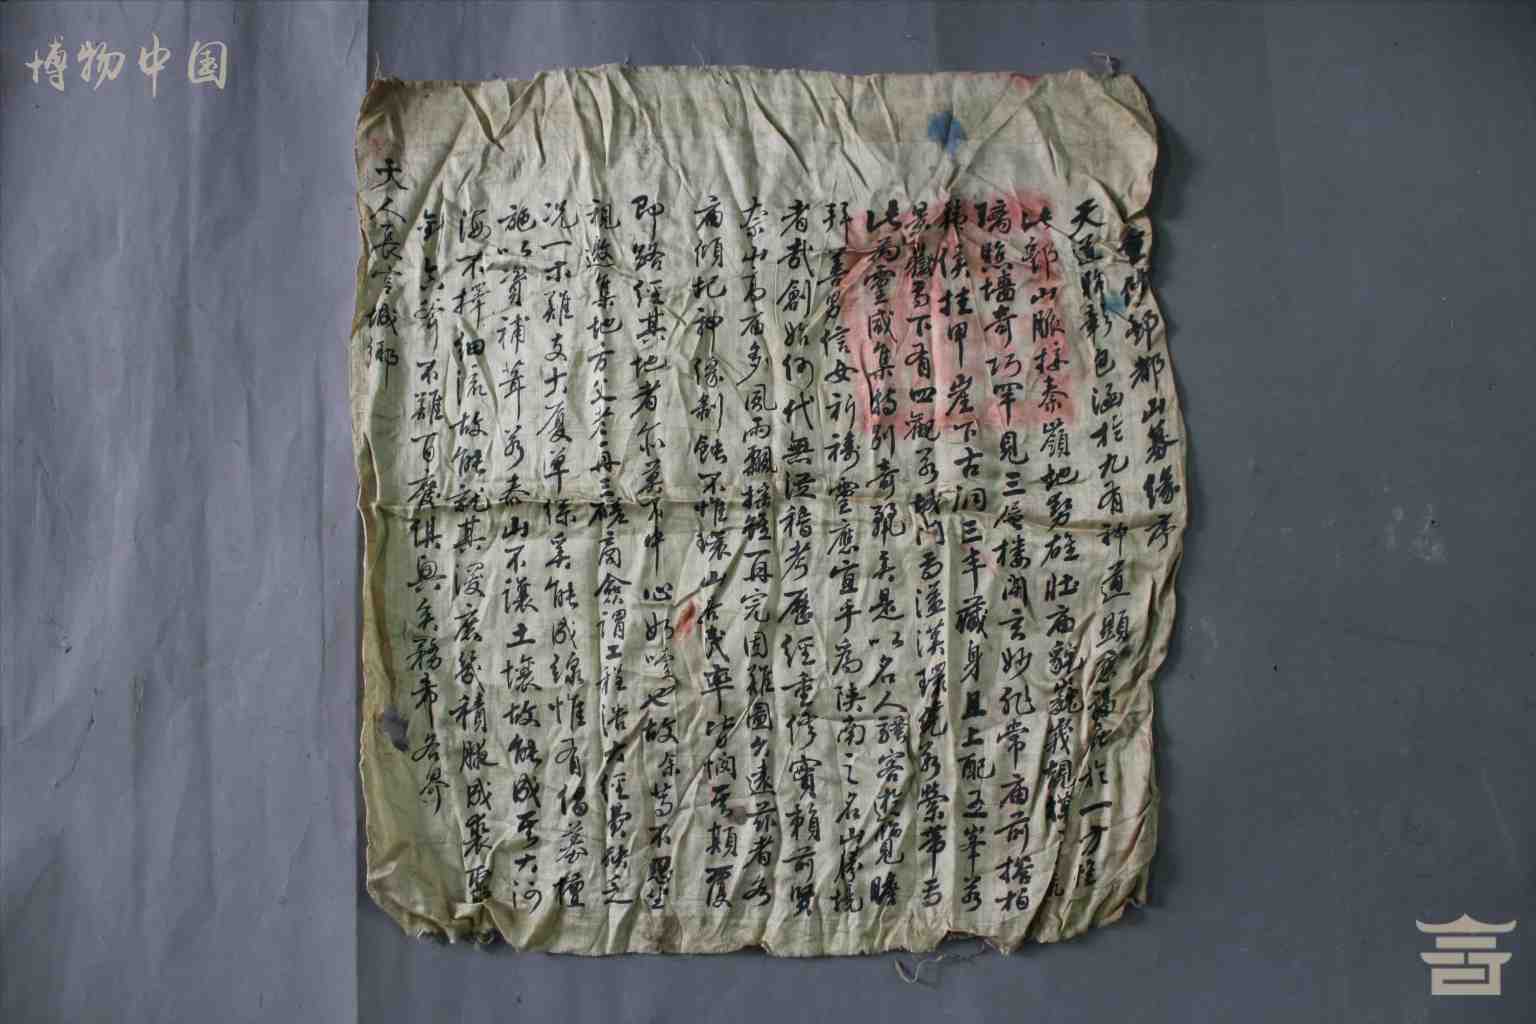 博物中国
重修郭都山募緣序
天道昭彰包涵於九有神道顯應福庇於一方惟
此郭山脈接秦嶺地勢雄壯廟貌巍峩規模
璃照墻奇巧罕見三層樓閣玄妙非常廟前搭柏
秣侯挂甲崖下古洞三丰藏身且上配五峯若
景觀焉下有四觀若城門焉溢漢環繞若縈帶焉
此為靈威集特別奇觀矣是以名人騷客遊覽瞻
拜善男信女祈禱靈應宜乎為陝南之名山勝境
者哉創始何代無從稽考歷經重修實賴前賢
奈山高廟多風雨飄搖雖再完固難圖久遠茲者各
廟傾圮神像剝蝕不惟環山居民率皆憫其頹覆
即路經其地者亦莫不中心如噎也故余等不忍坐
視邀集地方父老再三磋商僉謂工程浩大經費缺乏
况一木難支大廈單絲奚能成線惟有伯募檀
施以資補葺若泰山不讓土壤故能成其大河
海不擇細流故能就其深庶幾積腋成裘靈
鈞台 不難百廢俱興矣務希 各界
天人長岑城鄉